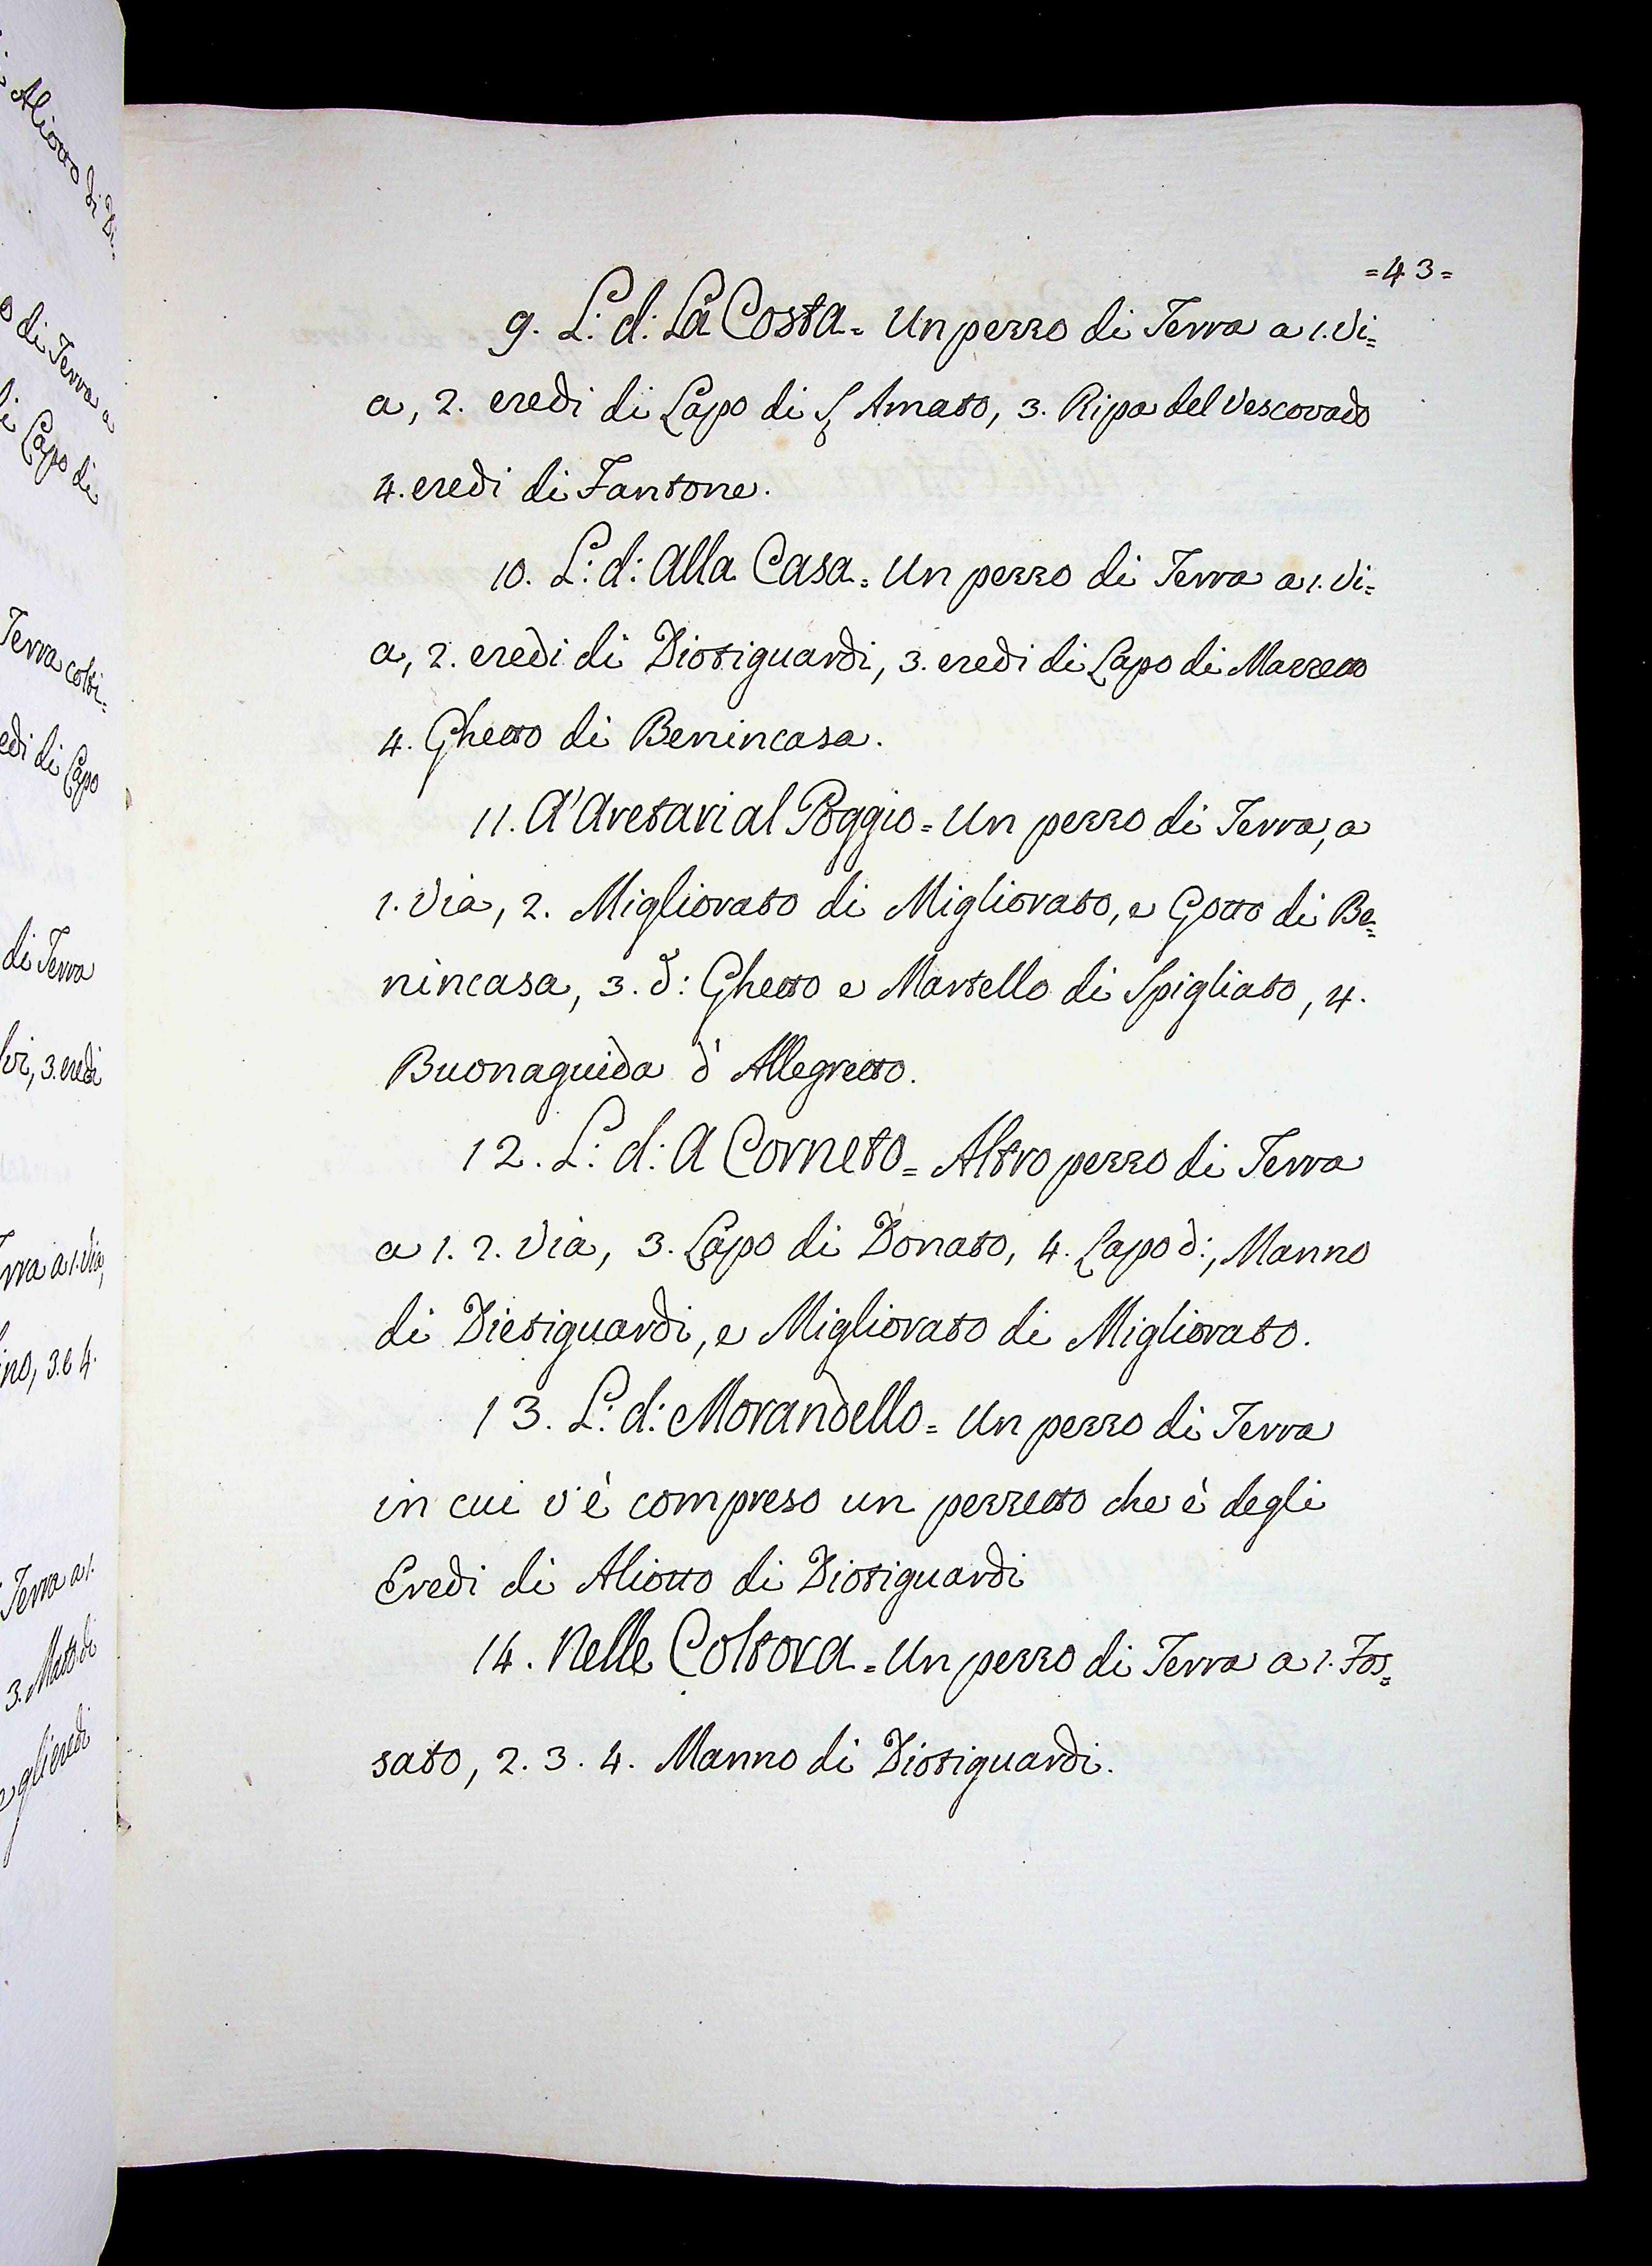 Aliotto di Di=
o di Terra a
di Lapo di
Terra colti=
edi di Lapo
di Terra
3. eredi
rra a 1. Via,
no, 3. e 4.
Terra a 1.
3. Matto di
e gli eredi
=43=
9. L: d: La Costa = Un pezzo di Terra a 1. Vi=
a, 2. eredi di Lapo di S. Amato, 3. Ripa del Vescovado
4. eredi di Fantone.
10. L: d: Alla Casa = Un pezzo di Terra a 1. Vi=
a, 2. eredi di Diotiguardi, 3. eredi di Lapo di Mazzetto
4. Ghetto di Benincasa.
11. A' Aretari al Poggio = Un pezzo di Terra, a
1. Via, 2. Migliorato di Migliorato, e Gotto di Be=
nincasa, 3. d: Ghetto e Martello di Spigliato, 4.
Buonaguida d' Allegretto.
12. L: d: A Corneto = Altro pezzo di Terra
a 1. 2. Via, 3. Lapo di Donato, 4. Lapo d:, Manno
di Dietiguardi, e Migliorato di Migliorato.
13. L: d: Morandello = Un pezzo di Terra
in cui v'è compreso un pezzetto che è degli
Eredi di Aliotto di Diotiguardi
14. Nelle Coltora = Un pezzo di Terra a 1. Fos=
sato, 2. 3. 4. Manno di Diotiguardi.